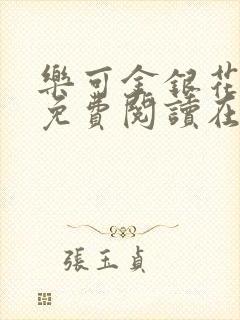 樂可金銀花
免費閱讀在
張玉貞